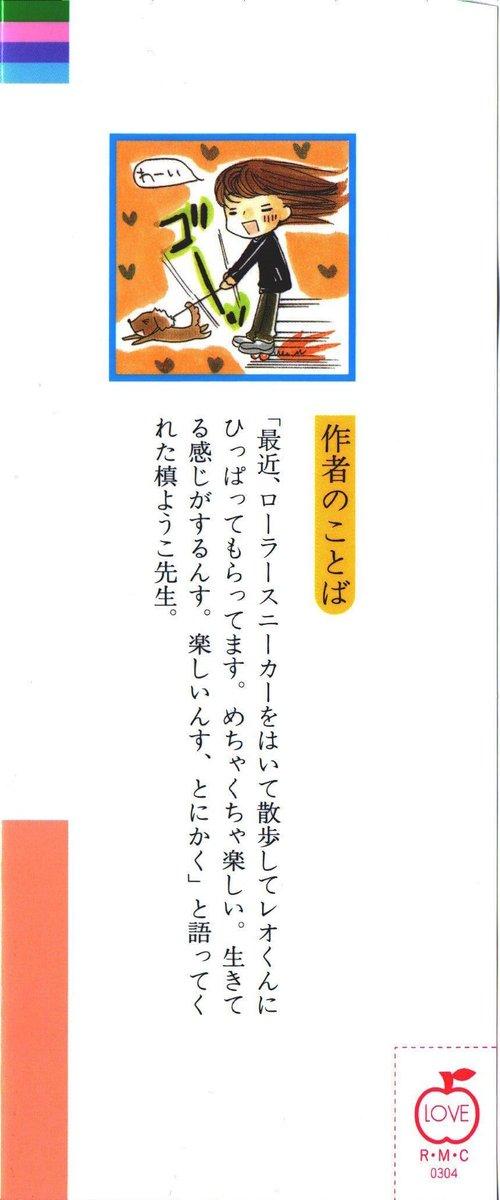 わーい
ゴーッ
作者のことば
「最近、ローラースニーカーをはいて散歩してレオくんに
ひっぱってもらってます。めちゃくちゃ楽しい。生きて
る感じがするんす。楽しいんす、とにかく」と語ってく
れた槙ようこ先生。
LOVE
R・M・C
0304